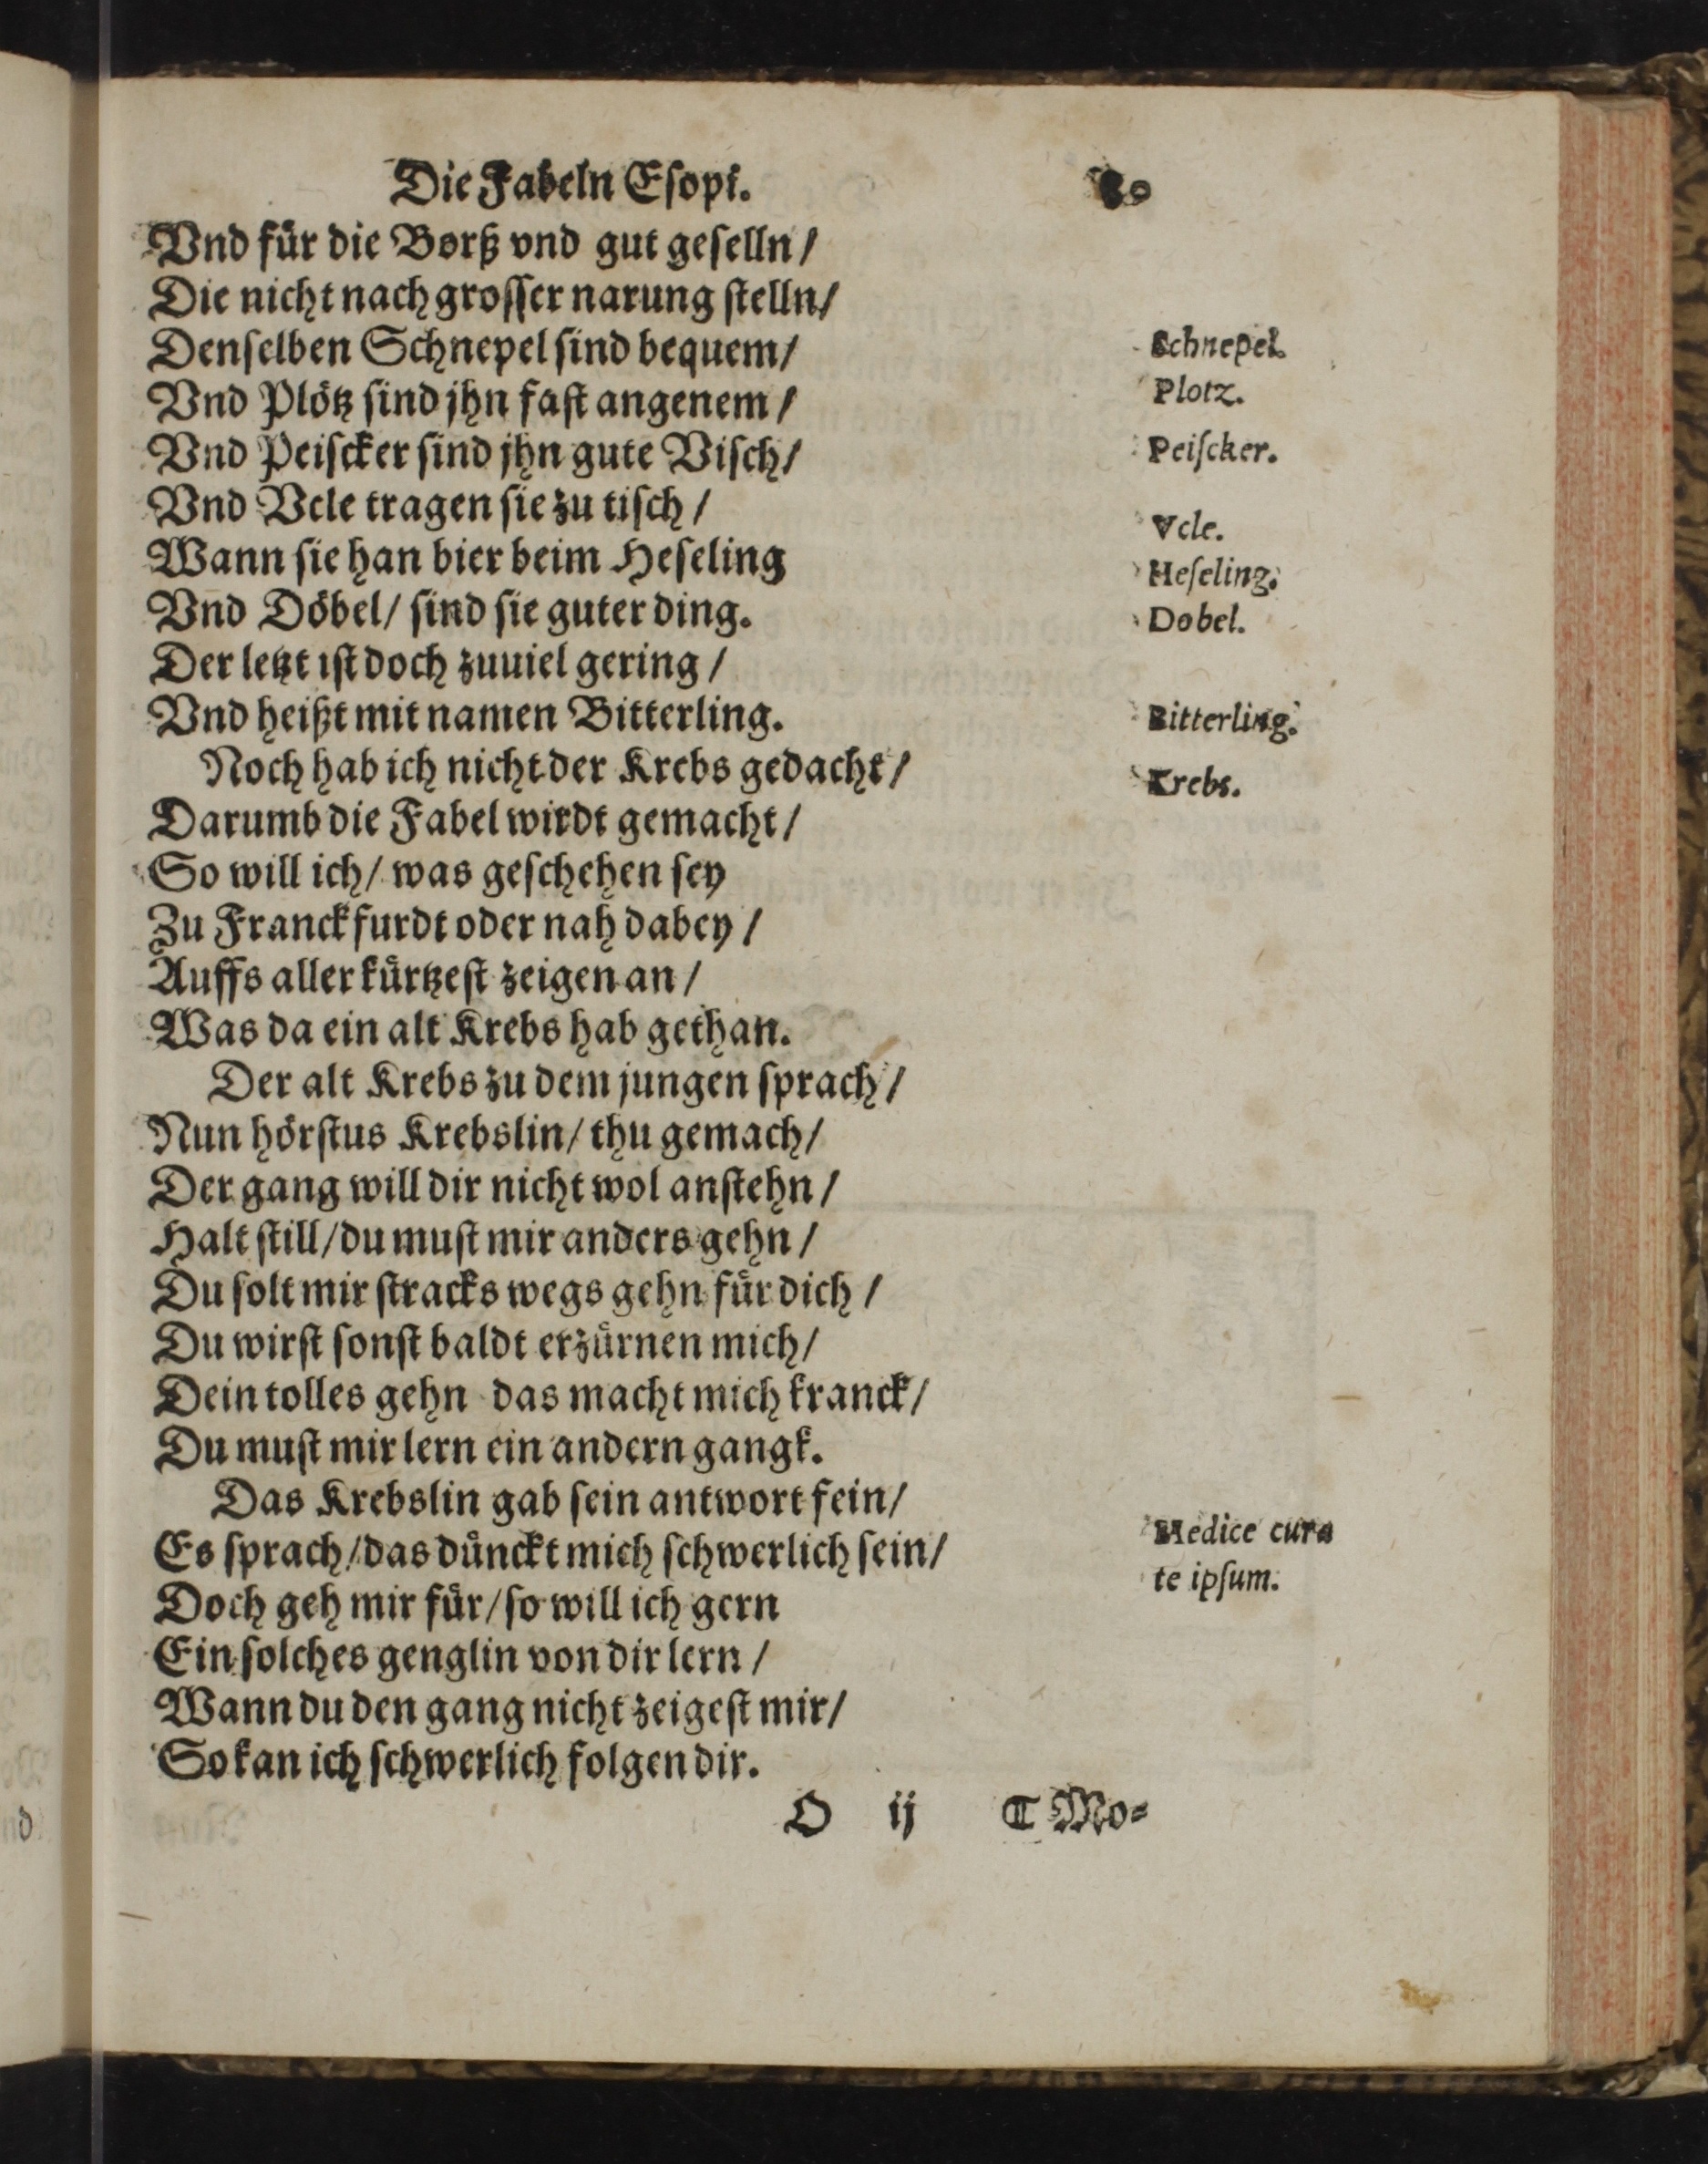 Die Fabeln Eſopi.
Vnd für die Borß vnd gut geſelln/
Die nicht nach groſſer narung ſtelln/
Denſelben Schnepel ſind bequem/
Schnepel.
Vnd Plötz ſind jhn faſt angenem/
Plotz.
Vnd Peiſcker ſind jhn gute Viſch/
Peiſcker.
Vnd Vcle tragen ſie zu tiſch/
Vcle.
Wann ſie han bier beim Heſeling
Heſeling.
Vnd Döbel/ ſind ſie guter ding.
Dobel.
Der letzt iſt doch zuuiel gering/
Vnd heißt mit namen Bitterling.
Bitterling.
Noch hab ich nicht der Krebs gedacht/
Krebs.
Darumb die Fabel wirdt gemacht/
So will ich/ was geſchehen ſey
Zu Franckfurdt oder nah dabey/
Auffs aller kürtzeſt zeigen an/
Was da ein alt Krebs hab gethan.
Der alt Krebs zu dem jungen ſprach/
Nun hörſtus Krebslin/ thu gemach/
Der gang will dir nicht wol anſtehn/
Halt ſtill/ du muſt mir anders gehn/
Du ſolt mir ſtracks wegs gehn für dich/
Du wirſt ſonſt baldt erzürnen mich/
Dein tolles gehn das macht mich kranck/
Du muſt mir lern ein andern gangk.
Das Krebslin gab ſein antwort fein/
Es ſprach/ das dünckt mich ſchwerlich ſein/
Medice cura
te ipſum.
Doch geh mir für/ ſo will ich gern
Ein ſolches genglin von dir lern/
Wann du den gang nicht zeigeſt mir/
So kan ich ſchwerlich folgen dir.
O ij ¶ Mo⸗